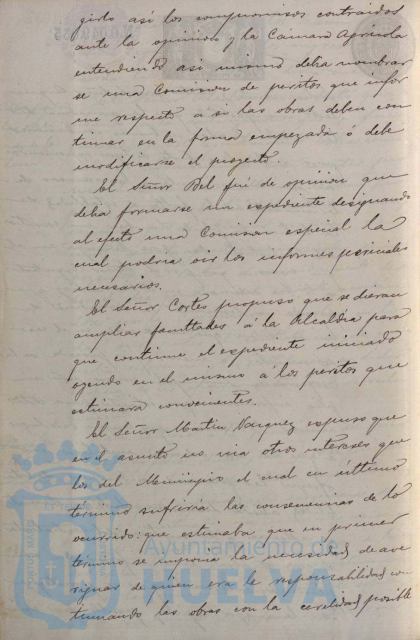 girlo así los compromisos contraidos
ante la opinion y la Cámara Agrícola
entendiendo asi mismo debia nombrar
se una Comision de peritos que infor
me respecto a si las obras deben con
tinuar en la forma empezada ó debe
modificarse el proyecto.
El Señor Bel fué de opinion que
debia formarse un expediente designando
al efecto una Comision especial la
cual podria oir los informes periciales
necesarios.
El Señor Cortes propuso que se dieran
ampliar facultades á la Alcaldia para
que continue el expediente iniciado
oyendo en el mismo á los peritos que
estimara convenientes.
El Señor Martin Vazquez expuso que
en el asunto no veia otros intereses que
los del Municipio el cual en último
término sufriria las consecuencias de lo
ocurrido: que estimaba que en primer
término se imponia la necesidad de ave
riguar de quien era la responsabilidad con
tinuando las obras con la celeridad posible
Ayuntamiento de
HUELVA